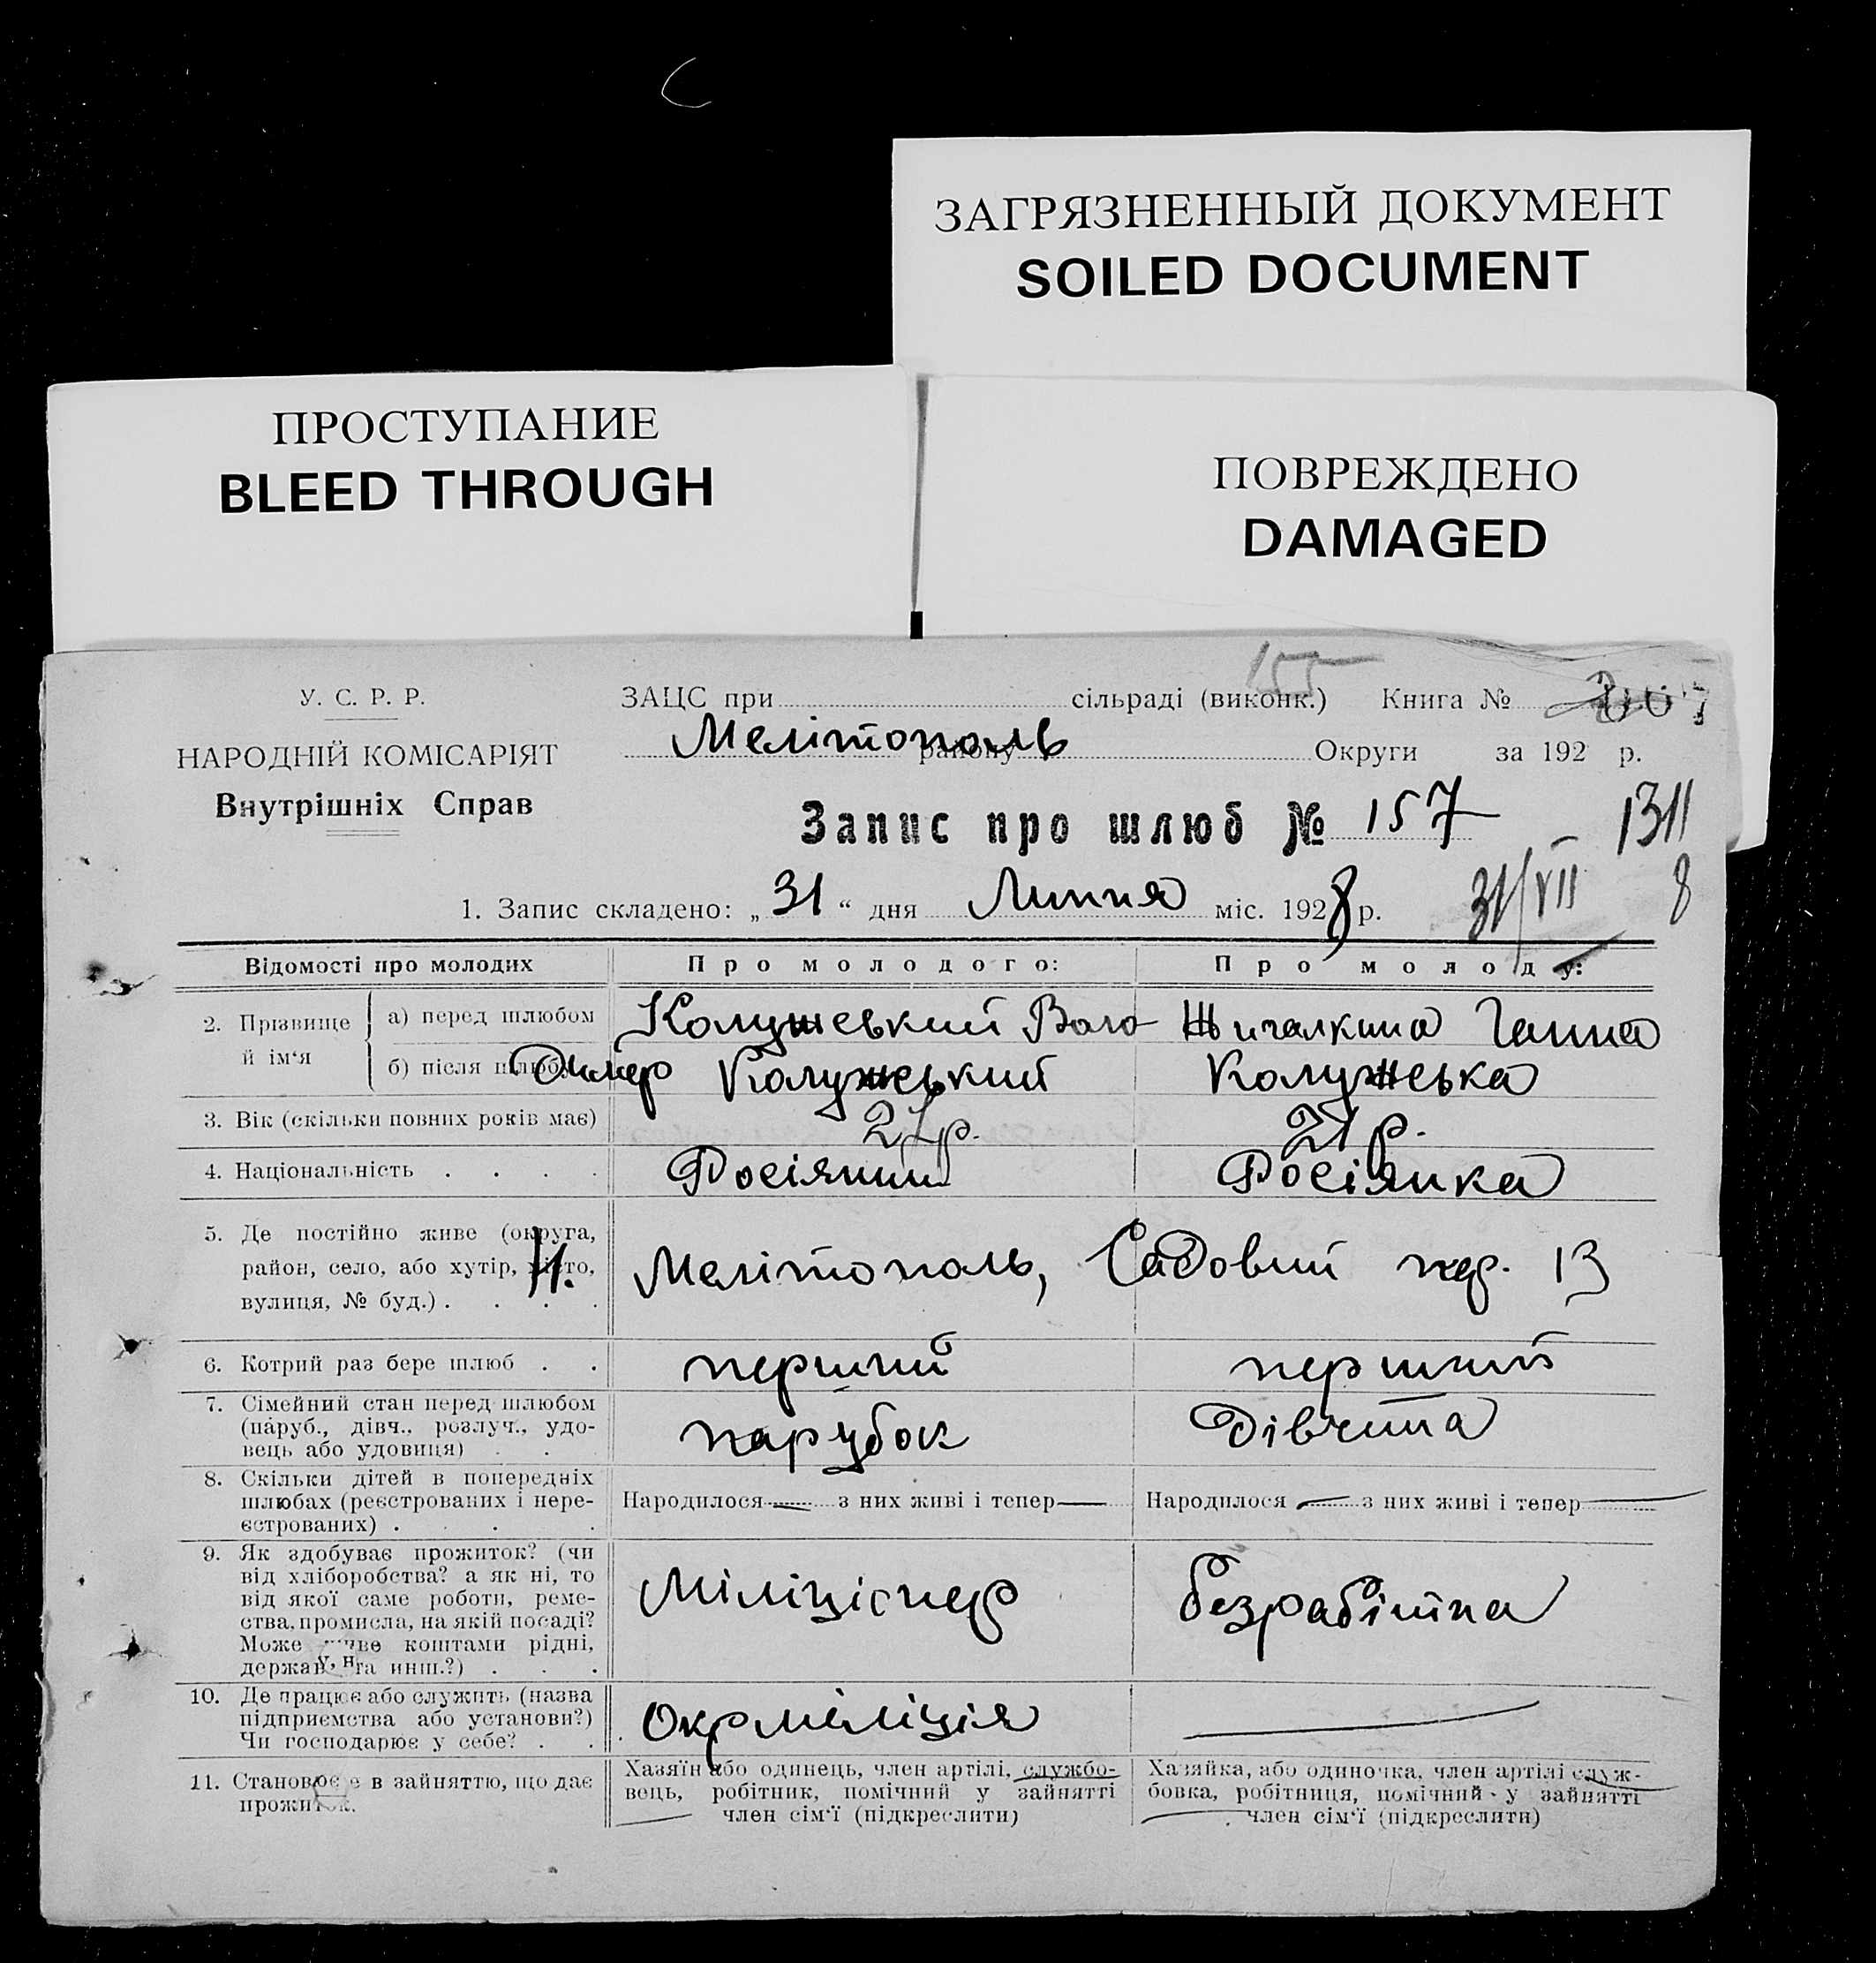 ЗАГРЯЗНЕННЫЙ ДОКУМЕНТ
SOILED DOCUMENT
ПРОСТУПАНИЕ
BLEED THROUGH
ПОВРЕЖДЕНО
DAMAGED
155
У. С. Р. Р.
НАРОДНІЙ КОМІСАРІЯТ
Внутрішніх Справ
ЗАЦС при сільраді (виконк.) Книга №
Мелітополь району Округи за 192 р.
Запис про шлюб № 157
1311
1. Запис складено: „31“ дня Липня міс. 1928 р.
31/VII 8
Відомості про молодих
Про молодого:
Про молоду:
2. Прізвище й ім‘я
а) перед шлюбом
Колужський Воло
Жигалкина Ганна
б) після шлюбу
димер Колужський
Колужська
3. Вік (скільки повних років має)
21 р.
21 р.
4. Національність . . . .
Росіянин
Росіянка
5. Де постійно живе (округа,
район, село, або хутір, місто,
вулиця, № буд.) . . . .
М. Мелітополь, Садовий пер. 13
6. Котрий раз бере шлюб . .
перший
перший
7. Сімейний стан перед шлюбом
(паруб., дівч., розлуч., удо-
вець або удовиця) . .
парубок
Дівчина
8. Скільки дітей в попередніх
шлюбах (реєстрованих і нере-
єстрованих) . . .
Народилося — з них живі і тепер —
Народилося — з них живі і тепер —
9. Як здобуває прожиток? (чи
від хліборобства? а як ні, то
від якої саме роботи, реме-
ства, промисла, на якій посаді?
Може живе коштами рідні,
держави та инш.?) . . .
Міліціонер
безробітна
10. Де працює або служить (назва
підприємства або установи?)
Чи господарює у себе? . .
Окрміліція
—
11. Становище в зайняттю, що дає
прожиток.
Хазяїн або одинець, член артілі, службо-
вець, робітник, помічний у зайнятті
член сім‘ї (підкреслити)
Хазяйка, або одиночка, член артілі служ-
бовка, робітниця, помічний у зайнятті
член сім‘ї (підкреслити)